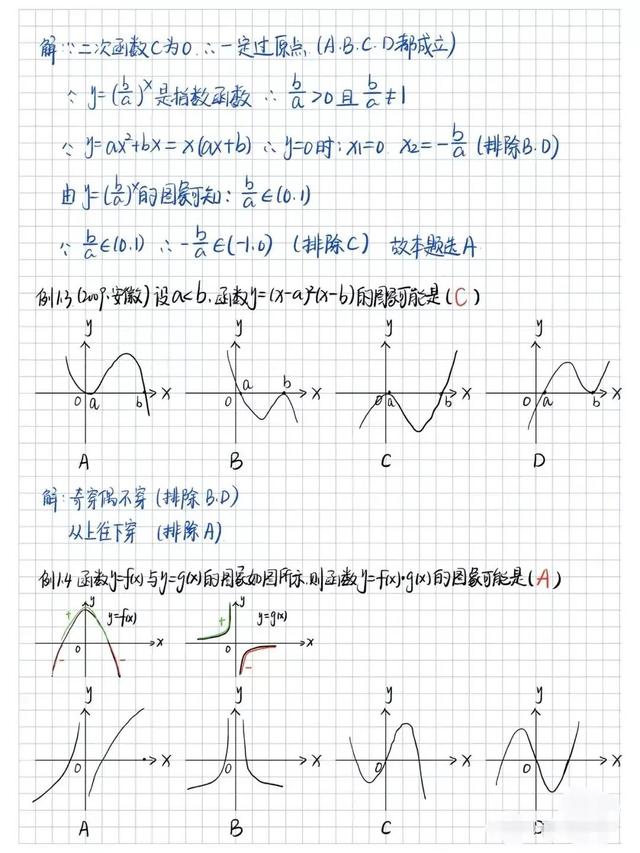 解:∵二次函数C为0 ∴一定过原点 (A.B.C.D都成立)
∵ y=(b/a)^x是指数函数 ∴ b/a>0且b/a≠1
∵ y=ax²+bx=x(ax+b) ∴y=0时:x1=0 x2=-b/a (排除B.D)
由y=(b/a)^x的图象可知: b/a∈(0.1)
∵ b/a∈(0.1) ∴ -b/a∈(-1.0) (排除C) 故本题选A
例1.3(2009.安徽)设a<b.函数y=(x-a)²(x-b)的图象可能是(C)
y y y y
0 a b x
0 a b x
0 a b x
0 a b x
A B C D
解:奇穿偶不穿(排除B.D)
从上往下穿 (排除A)
例1.4 函数y=f(x)与y=g(x)的图象如图所示.则函数y=f(x)·g(x)的图象可能是(A)
+ y y=f(x) + y y=g(x)
- 0 - x 0 - x
y y y y
0 x 0 x 0 x 0 x
A B C D